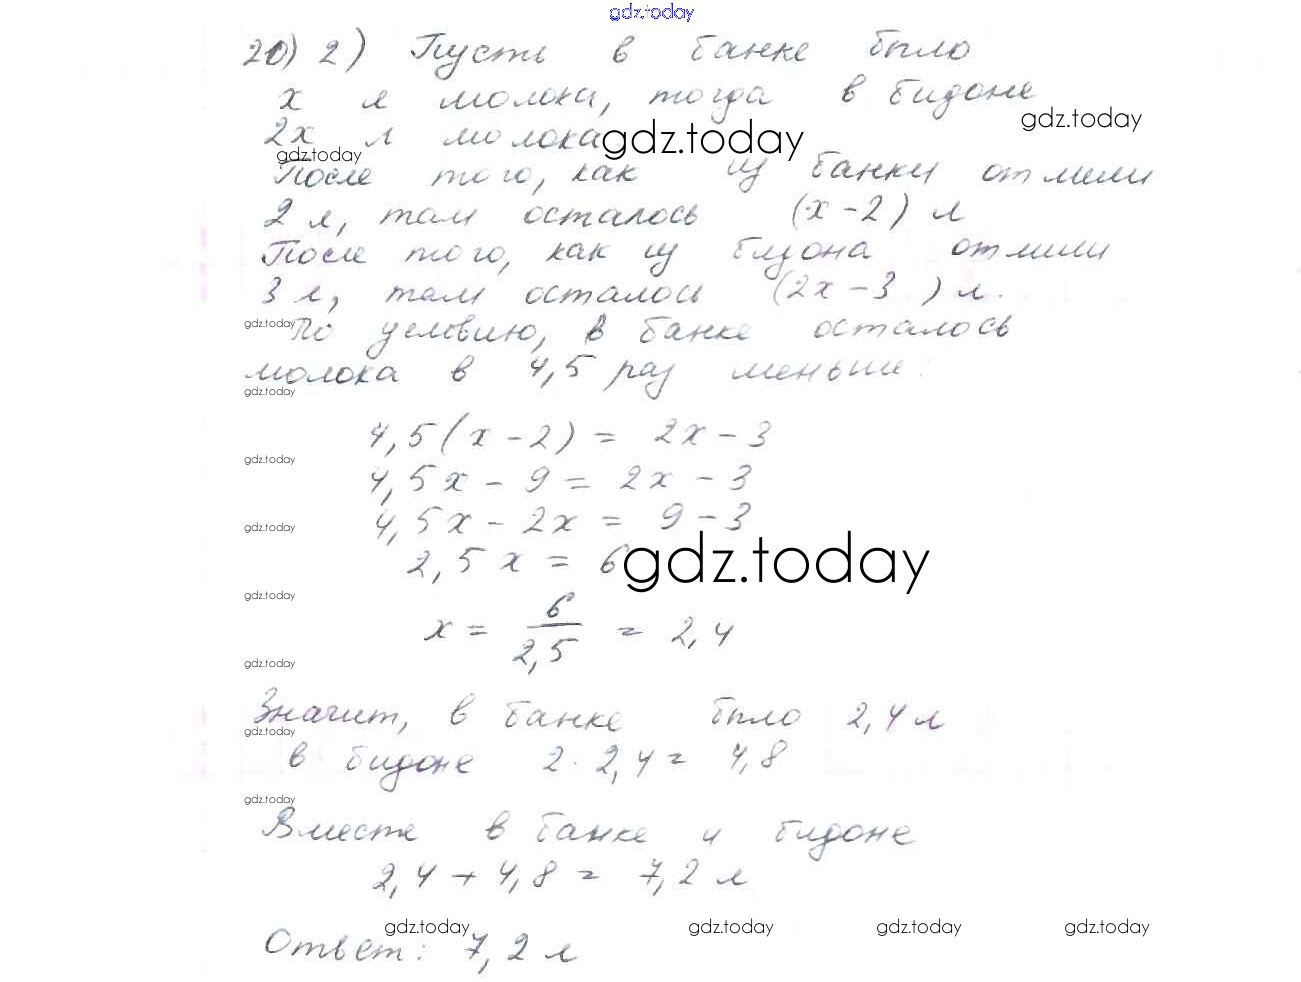 gdz.today
20) 2) Пусть в банке было
x л молока, тогда в бидоне
gdz.today
2x л молока
gdz.today
gdz.today
После того, как из банки отлили
2 л, там осталось (x - 2) л
После того, как из бидона отлили
3 л, там осталось (2x - 3) л.
gdz.today
По условию, в банке осталось
молока в 4,5 раз меньше:
gdz.today
4,5(x - 2) = 2x - 3
gdz.today
4,5x - 9 = 2x - 3
4,5x - 2x = 9 - 3
gdz.today
2,5x = 6
gdz.today
gdz.today
x = 6/2,5 = 2,4
gdz.today
Значит, в банке было 2,4 л
gdz.today
в бидоне 2 · 2,4 = 4,8
gdz.today
Вместе в банке и бидоне
2,4 + 4,8 = 7,2 л
gdz.today gdz.today gdz.today gdz.today
Ответ: 7,2 л